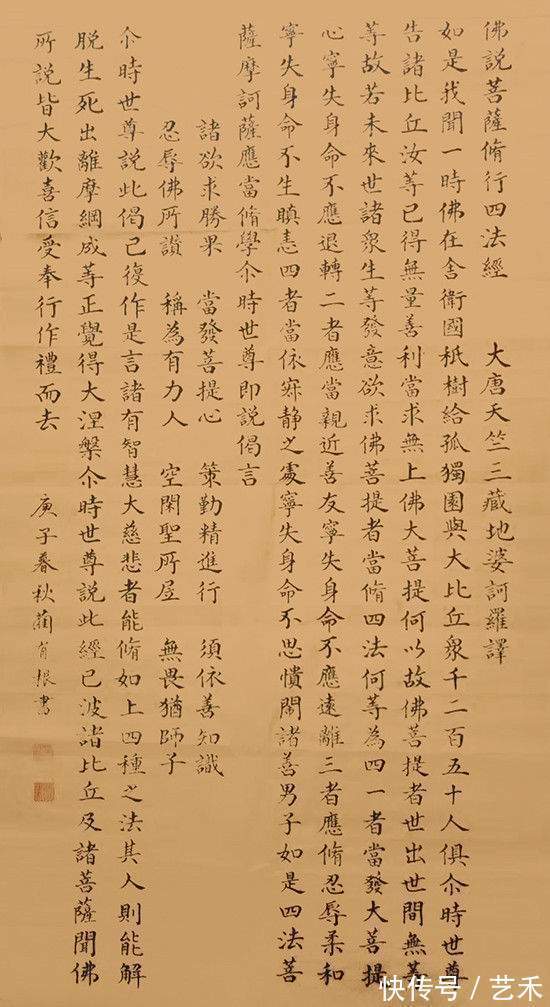 佛說菩薩脩行四法經 大唐天竺三藏地婆訶羅譯
如是我聞一時佛在舍衛國祇樹給孤獨園與大比丘眾千二百五十人俱尒時世尊
告諸比丘汝等已得無量善利當求無上佛大菩提何以故佛菩提者世出世間無等
等故若未來世諸眾生等發意欲求佛菩提者當脩四法何等為四一者當發大菩提
心寧失身命不應退轉二者應當親近善友寧失身命不應遠離三者應脩忍辱柔和
寧失身命不生瞋恚四者當依寂静之處寧失身命不思憒閙諸善男子如是四法菩
薩摩訶薩應當脩學尒時世尊即說偈言
諸欲求勝果 當發菩提心 策勤精進行 須依善知識
忍辱佛所讚 稱為有力人 空閑聖所居 無畏猶師子
尒時世尊說此偈已復作是言諸有智慧大慈悲者能脩如上四種之法其人則能解
脫生死出離摩綱成等正覺得大涅槃尒時世尊說此經已波諸比丘及諸菩薩聞佛
所說皆大歡喜信受奉行作禮而去
庚子春秋 根書
快传号/艺禾